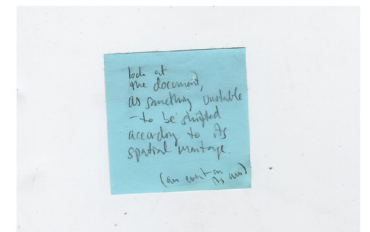 look at
the document,
as something unstable
- to be shifted
according to its
spatial montage.
(an event on its own)